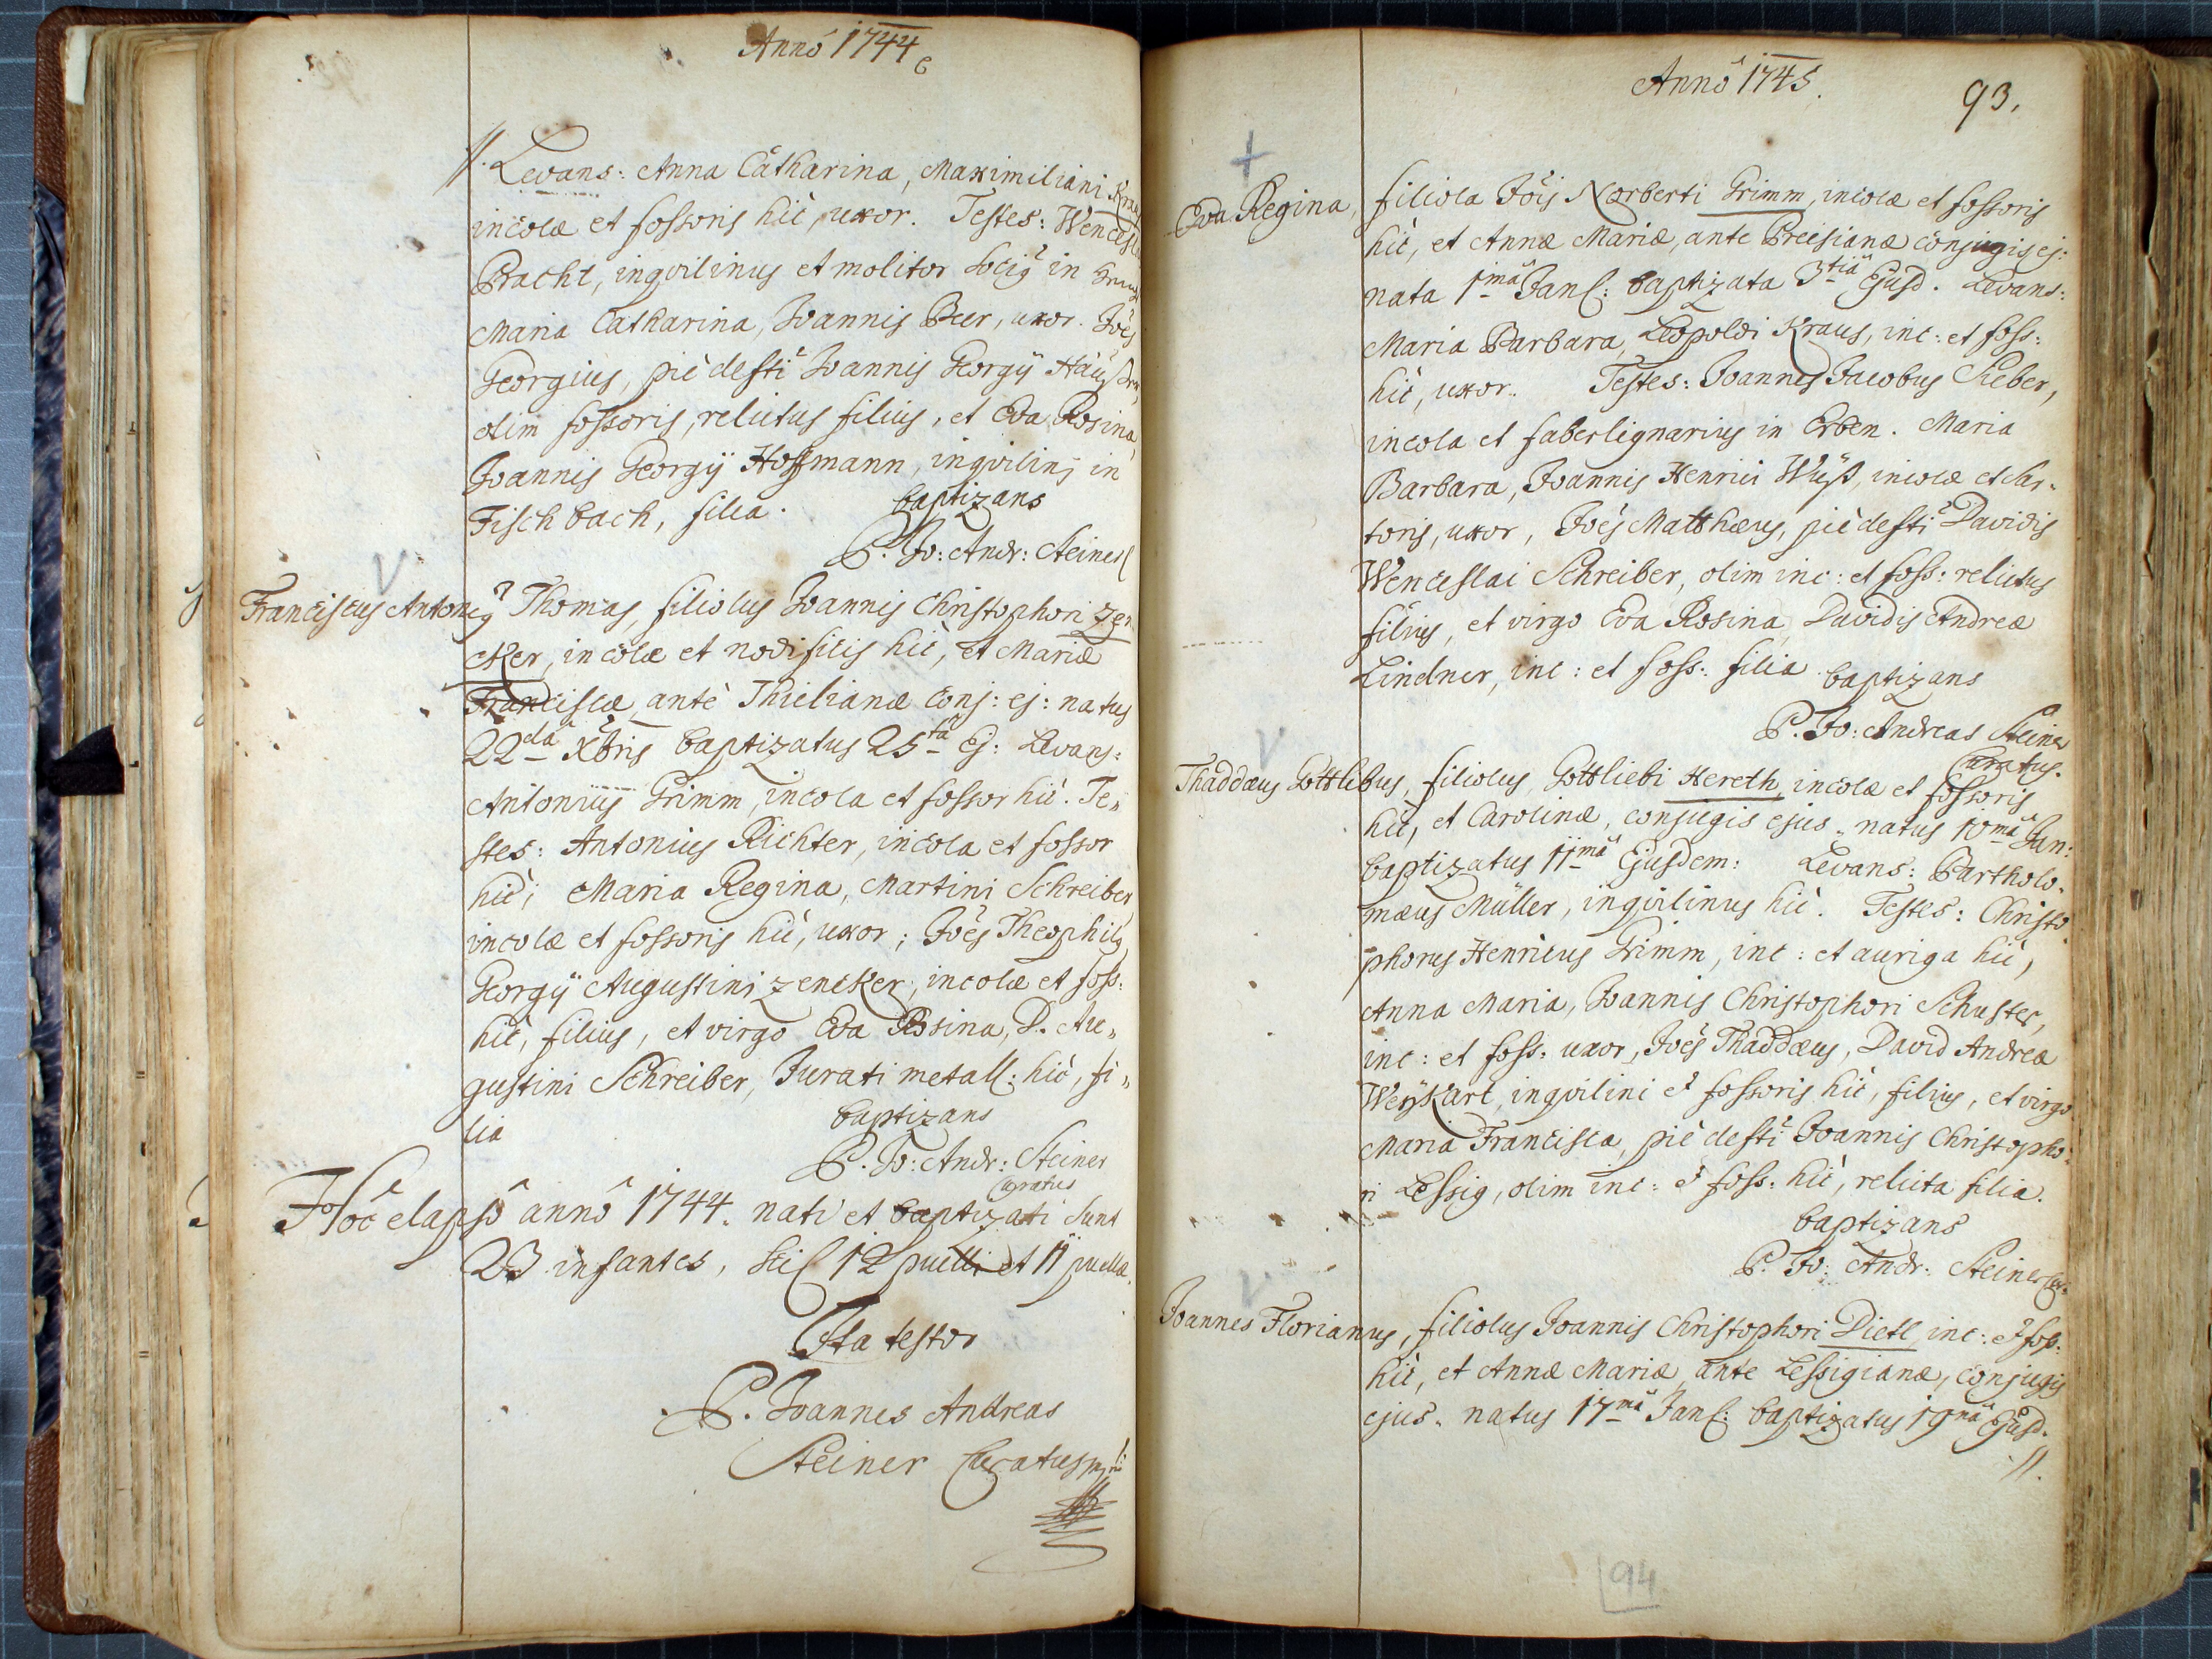 Annô 1744
//. Levans: Anna Catharina, Maximiliani
incolæ et fossoris hîc, uxor. Testes: Wencesl
Bacht, inqvilinus et molitor
Maria Catharina, Joannis Beer, uxor. Jôes
Georgius, piè defti Joannis Georgij
olim fossoris, relictus filius, et Eva Rosina
Joannis Georgij Hoffmann, inqvilinj in
Fischbach, filia. baptizans
P. Jo: Andr: Steiner
Franciscus Antonig Thomas, filiolus Joannis Christophori Zen
cker, incolæ et nodificis hîc, et Mariæ
Franciscæ, antè Thielianæ conj: ej: natus
22dâ Xbris baptizatus 25tâ ej: Levans:
Antonius Grimm, incola et fossor hîc. Te„
stes: Antonius Richter, incola et fossor
hîc; Maria Regina, Martini Schreiber
incolæ et fossoris hîc, uxor; Jôes Theophilg
Georgij Augustini Zencker, incolæ et foss:
hîc, filius, et virgo Eva Rosina, D. Au„
gustini Schreiber, Jurati metall: hîc, fi„
lia baptizans
P. Jo: Andr: Steiner
Curatus
Hôc elapsô annô 1744. nati et baptizati sunt
23 infantes, scil 12 puelli et 11 puellæ.
Ita testor
P. Joannes Andreas
Steiner Curatus
Annô 1745.
93.
Eva Regina, filiola Jôis Norberti Grimm, incolæ et fossoris
hîc, et Annæ Mariæ, ante Preisianæ conjugis ej:
nata 1mâ Jan: baptizata 3tiâ Ejusd. Levans:
Maria Barbara, Leopoldi Kraus, inc: et foss:
hîc, uxor. Testes: Joannes Jacobus Sieber,
incola et faberlignarius in Erben. Maria
Barbara, Joannis Henrici Wüst, incolæ et sar„
toris, uxor, Jôes Matthæus, piè defti Davidis
Wenceslai Schreiber, olim inc: et foss: relictus
filius, et virgo Eva Rosina, Davidis Andreæ
Lindner, inc: et foss: filia baptizans
P. Jo: Andreas Steiner
Curatus.
Thaddæus Gottlibus, filiolus, Gottliebi Hereth, incolæ et fossoris
hîc, et Carolinæ, conjugis ejus„ natus 10mâ Jan:
baptizatus 11mâ Ejusdem: Levans: Bartholo„
mæus Müller, inqvilinus hîc. Testes: Christo„
phorus Henricus Grimm, inc: et auriga hîc,
Anna Maria, Joannis Christophori Schuster,
inc: et foss: uxor, Jôes Thaddæus, David Andreæ
Weykart, inqvilini et fossoris hîc, filius, et virgo
Maria Francisca, piè defti Joannis Christopho„
ri Lessig, olim inc: et foss: hîc, relicta filia.
baptizans
P. Jo: Andr: Steiner Cur:
Joannes Florianus, filiolus Joannis Christophori Dietl, inc: et foss:
hîc, et Annæ Mariæ, ante Lessigianæ, conjugis
ejus„ natus 17mâ Jan: baptizatus 19nâ Ejusd.
//.
94